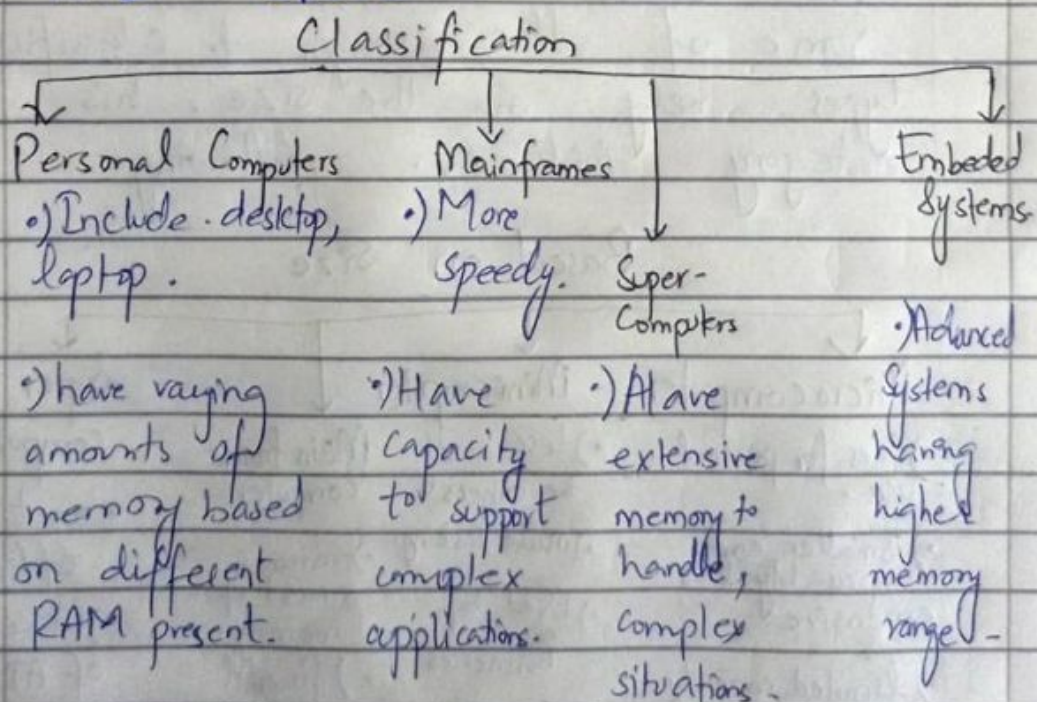 Classification
Personal Computers
•) Include desktop,
laptop.
•) have varying
amounts of
memory based
on different
RAM present.
Mainframes
•) More
speedy.
•) Have
capacity
to support
complex
applications.
Super-
Computers
•) Have
extensive
memory to
handle,
complex
situations.
Embeded
Systems.
•) Advanced
Systems
having
higher
memory
range.